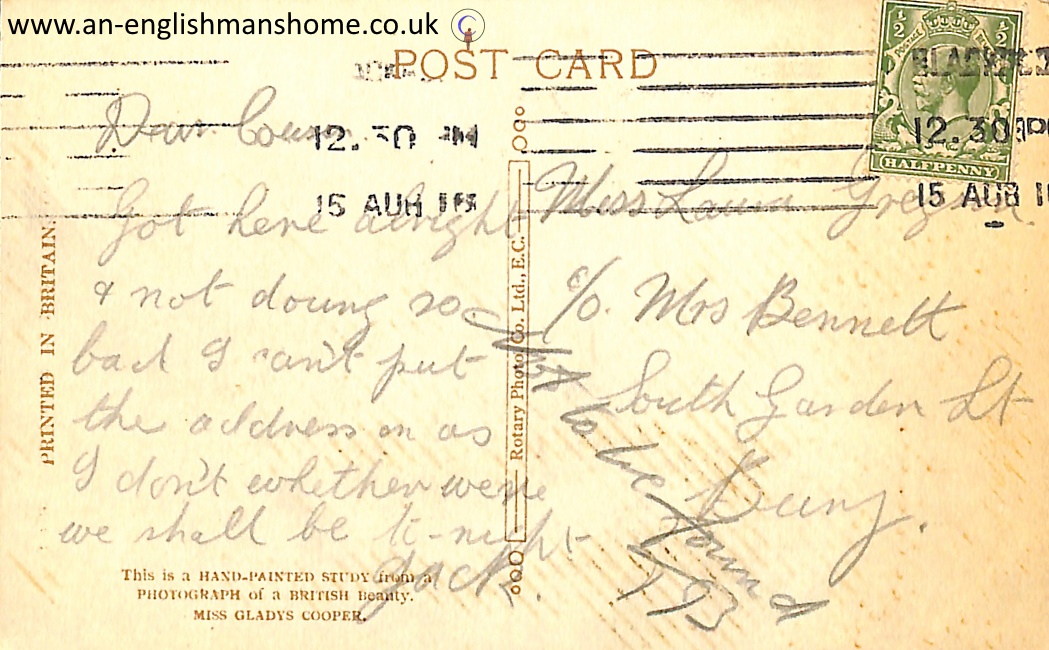 www.an-englishmanshome.co.uk
POST CARD
½ ½
POSTAGE
HALFPENNY
BLACK
12.30 PM
15 AUG 1
12.30 PM
15 AUG 16
Dear Cousin
Got here alright
& not doing so
bad I can't put
the address on as
I don't whether were
we shall be to-night
Jack.
Miss Laura Gregson
c/o. Mrs Bennett
South Garden St
Bury.
Not to be found
PRINTED IN BRITAIN.
Rotary Photo Co. Ltd., E.C.
This is a HAND-PAINTED STUDY from a
PHOTOGRAPH of a BRITISH Beauty.
MISS GLADYS COOPER.